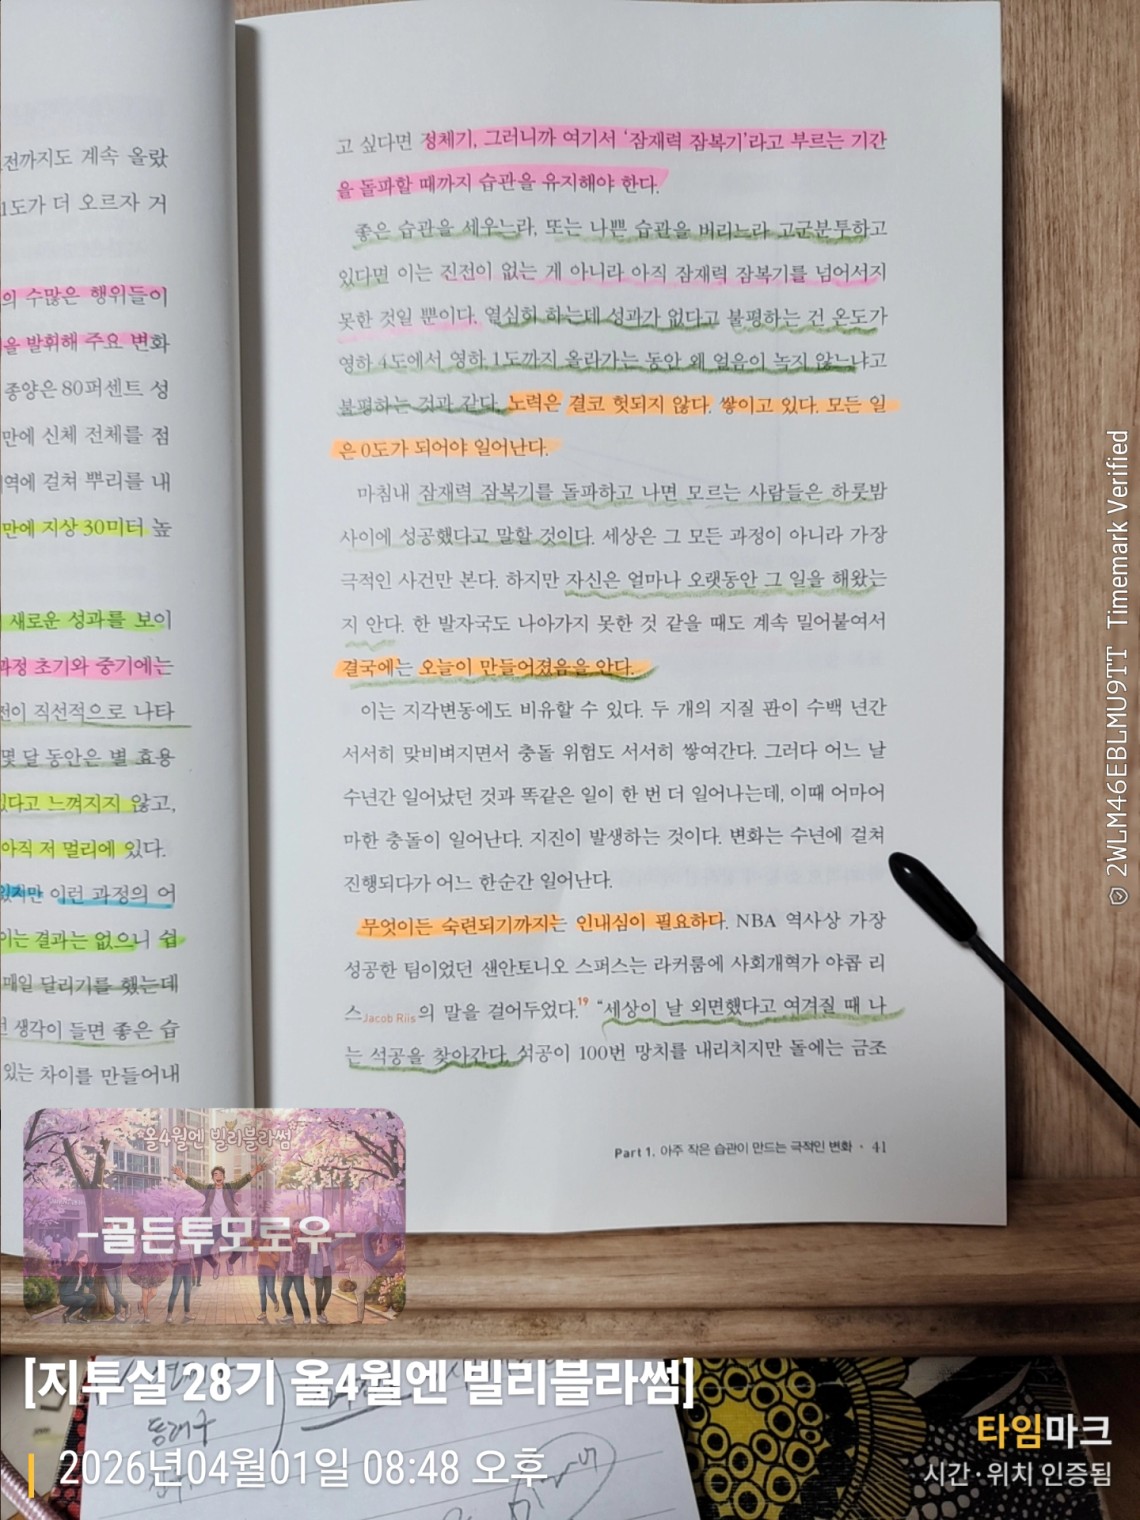 전까지도 계속 올랐
1도가 더 오르자 거
의 수많은 행위들이
을 발휘해 주요 변화
종양은 80퍼센트 성
만에 신체 전체를 점
역에 걸쳐 뿌리를 내
만에 지상 30미터 높
새로운 성과를 보이
과정 초기와 중기에는
전이 직선적으로 나타
몇 달 동안은 별 효용
있다고 느껴지지 않고,
아직 저 멀리에 있다.
있지만 이런 과정의 어
이는 결과는 없으니 쉽
매일 달리기를 했는데
생각이 들면 좋은 습
있는 차이를 만들어내
고 싶다면 정체기, 그러니까 여기서 ‘잠재력 잠복기’라고 부르는 기간
을 돌파할 때까지 습관을 유지해야 한다.
좋은 습관을 세우느라, 또는 나쁜 습관을 버리느라 고군분투하고
있다면 이는 진전이 없는 게 아니라 아직 잠재력 잠복기를 넘어서지
못한 것일 뿐이다. 열심히 하는데 성과가 없다고 불평하는 건 온도가
영하 4도에서 영하 1도까지 올라가는 동안 왜 얼음이 녹지 않느냐고
불평하는 것과 같다. 노력은 결코 헛되지 않다. 쌓이고 있다. 모든 일
은 0도가 되어야 일어난다.
마침내 잠재력 잠복기를 돌파하고 나면 모르는 사람들은 하룻밤
사이에 성공했다고 말할 것이다. 세상은 그 모든 과정이 아니라 가장
극적인 사건만 본다. 하지만 자신은 얼마나 오랫동안 그 일을 해왔는
지 안다. 한 발자국도 나아가지 못한 것 같을 때도 계속 밀어붙여서
결국에는 오늘이 만들어졌음을 안다.
이는 지각변동에도 비유할 수 있다. 두 개의 지질 판이 수백 년간
서서히 맞비벼지면서 충돌 위험도 서서히 쌓여간다. 그러다 어느 날
수년간 일어났던 것과 똑같은 일이 한 번 더 일어나는데, 이때 어마어
마한 충돌이 일어난다. 지진이 발생하는 것이다. 변화는 수년에 걸쳐
진행되다가 어느 한순간 일어난다.
무엇이든 숙련되기까지는 인내심이 필요하다. NBA 역사상 가장
성공한 팀이었던 샌안토니오 스퍼스는 라커룸에 사회개혁가 야콥 리
스Jacob Riis의 말을 걸어두었다.19 “세상이 날 외면했다고 여겨질 때 나
는 석공을 찾아간다. 석공이 100번 망치를 내리치지만 돌에는 금조
Part 1. 아주 작은 습관이 만드는 극적인 변화 · 41
2WLM46EBLMU9TT Timemark Verified
올4월엔 빌리블라썸
-골든투모로우-
[지투실 28기 올4월엔 빌리블라썸]
동래구
2026년04월01일 08:48 오후
타임마크
시간·위치 인증됨